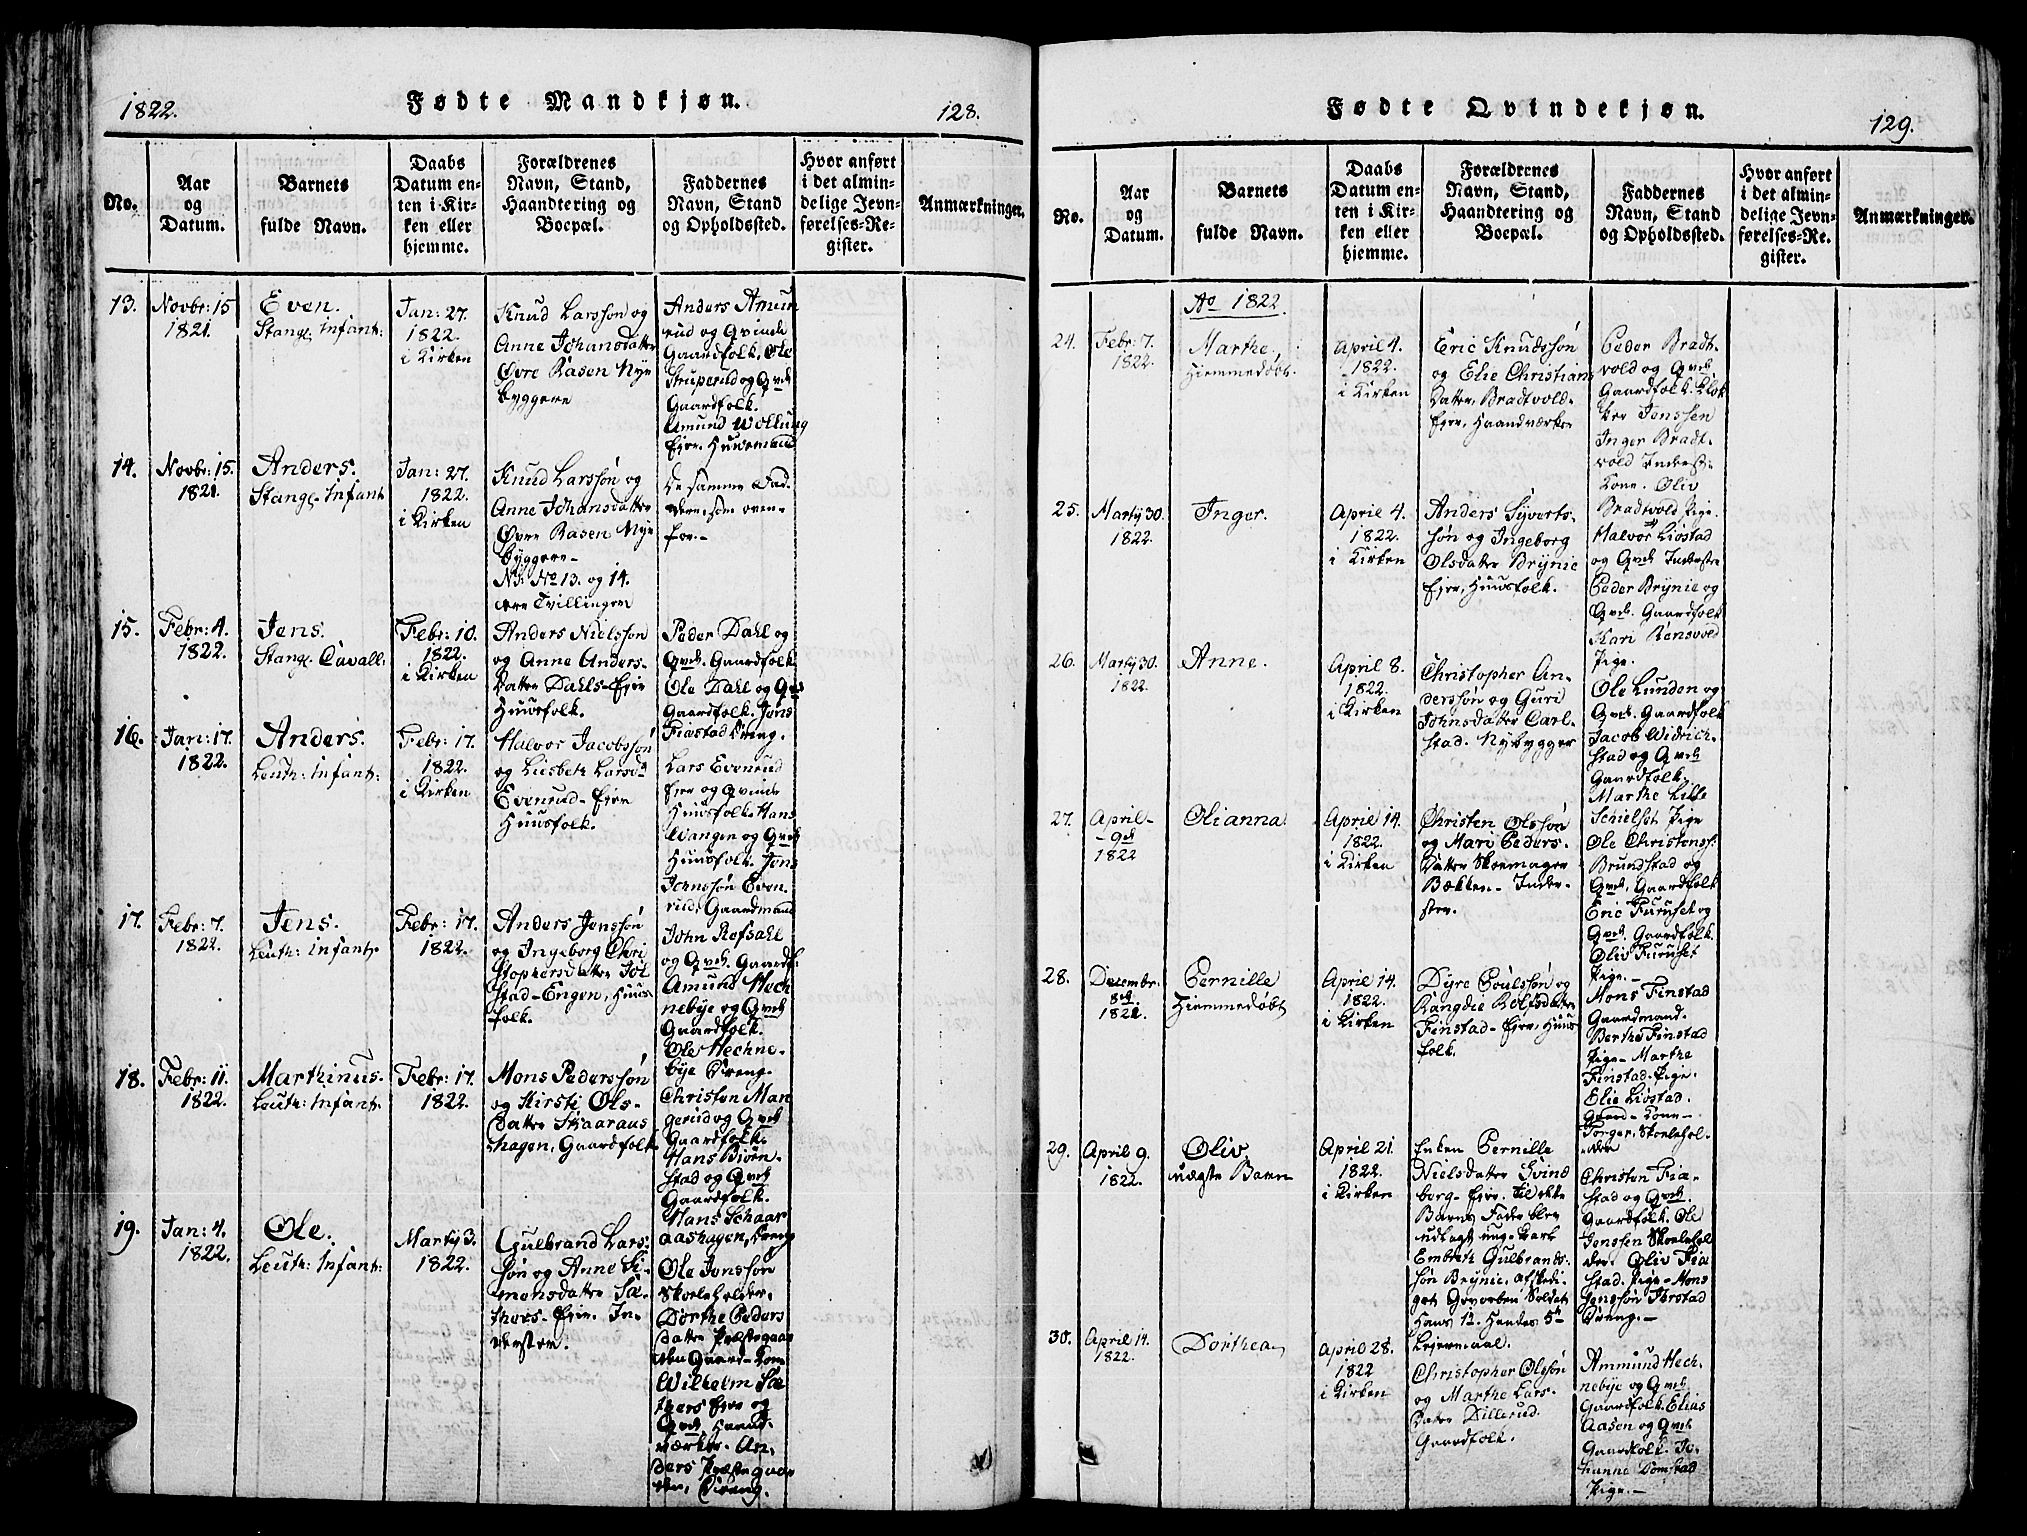 1822.
Fødte Mandkjøn.
128.
No.
Aar
og
Datum.
Barnets
fulde Navn.
Daabs
Datum en-
ten i Kir-
ken eller
hjemme.
Forældrenes
Navn, Stand,
Haandtering og
Boepæl.
Faddernes
Navn, Stand
og Opholdssted.
Hvor anført
i det almin-
delige Jevn-
førelses-Re-
gister.
Anmærkninger.
13.
Novbr: 15
1821.
Even.
Stange Infant:
Jan: 27.
1822.
i Kirken
Knud Larssøn og
Anne Johansdatter
Øvre Rasen Nye
byggere
Anders Amun
rud og Qvinde
Gaardfolk, Ole
Struperud og Qvd
Gaardfolk.
Amund Wollung
Ejer, Huusmand
14.
Novbr: 15.
1821.
Anders.
Stange Infant
Jan: 27.
1822.
i Kirken
Knud Larssøn og
Anne Johansdatter
Øvre Rasen Nye
byggere-
NB: No 13. og 14.
ere Tvillinger
De samme Fad-
dere, som oven-
for.-
15.
Febr: 4.
1822.
Jens.
Stange Cavall.
Febr: 10.
1822.
i Kirken
Anders Nielssøn
og Anne Anders-
datter Dahls-Ejer
Huusfolk.
Peder Dahl og
Qvd. Gaardfolk.
Ole Dahl og Qvd
Gaardfolk. Jens
Fiastad Dreng.
16.
Jan: 17.
1822.
Anders.
Leuth: Infant:
Febr: 17.
1822.
i Kirken
Halvor Jacobssøn
og Lisbeth Larsd
Evenrud-Ejer
Huusfolk.
Lars Evenrud
Ejer og Qvinde
Huusfolk. Hans
Wangen og Qvd
Huusfolk. Jens
Johnssøn Even-
rud, Gaardmand
17.
Febr: 7.
1822.
Jens.
Leuth: Infant:
Febr: 17.
1822.
Anders Jenssøn
og Ingeborg Chri
stophersdatter Jøl
stad-Engen, Huus
folk.
John Refsahl
og Qvd. Gaardf:
Amund Hech
nebye og Qvd
Gaardfolk.
Ole Hechne-
bye Dreng.
18.
Febr: 11.
1822.
Marthinus.
Leuth: Infant:
Febr: 17.
1822.
Mons Pederssøn
og Kirsti Ols-
datter Skaaraas
hagen, Gaardfolk
Christen Man
gerud og Qvd
Gaardfolk.
Hans Biørn-
stad og Qvd
Gaardfolk.
Hans Schaar
aashagen, Dreng
19.
Jan: 4.
1822.
Ole.
Leuth: Infant:
Marty 3.
1822.
Gulbrand Lars-
søn og Anne Si-
monsdatter Sæ-
thers-Ejer. In-
derster.
Ole Jonssøn
Skoleholder.
Dorthe Peders
datter Præstegaar
den Gaard-Kone
Wilhelm Sæ-
thers Ejer og
Qvd, Haand-
værker. An-
ders Præstegaar
den, Dreng.
Fødte Qvindekjøn.
129.
No.
Aar
og
Datum.
Barnets
fulde Navn.
Daabs
Datum en-
ten i Kir-
ken eller
hjemme.
Forældrenes
Navn, Stand,
Haandtering og
Boepæl.
Faddernes
Navn, Stand
og Opholdssted.
Hvor anført
i det almin-
delige Jevn-
førelses-Re-
gister.
Anmærkninger.
Ao 1822.
24.
Febr: 7.
1822.
Marthe.
Hiemmedøbt.
April 4.
1822.
i Kirken
Eric Knudssøn
og Elie Christians
datter, Bradtvold-
Ejer, Haandværker
Peder Bradt-
vold og Qvd
Gaardfolk. Klok
ker Jenssen
Inger Bradt-
vold Inderst-
Kone. Oliv
Bradtvold Pige.
25.
Marty 30.
1822.
Inger.
April 4.
1822.
i Kirken
Anders Syverts-
søn og Ingeborg
Olsdatter Brynie
Ejer, Huusfolk.
Halvor Liøstad
og Qvd Inderster
Peder Brynie og
Qvd. Gaardfolk
Kari Rensvold
Pige.
26.
Marty 30.
1822.
Anne.
April 8.
1822.
i Kirken
Christopher An-
derssøn og Guri
Johnsdatter Carl-
stad. Nybygger
Ole Lunden og
Qvd. Gaardfolk
Jacob Widrich-
stad og Qvd
Gaardfolk.
Marthe Lille
Schielset Pige
27.
April-
-9d
1822
Olianna
April 14.
1822.
i Kirken
Christen Olssøn
og Mari Peders-
datter Skoemager
Bækken- Inder-
ster.
Ole Christenss:
Brundstad og
Qvd. Gaardfolk
Eric Furuset og
Qvd. Gaardfolk.
Oliv Furuset
Pige.-
28.
Decembr:
8d
1821.
Pernille
Hiemmedøbt
April 14.
1822.
i Kirken
Dyre Poulssøn og
Rangdie Rolfsdatter
Finstad-Ejer, Huus
folk.
Mons Finstad
Gaardmand.
Berthe Finstad
Pige- Marthe
Finstad. Pige.
Elie Liøstad.
Gaard-Kone-
Torger, Skolehol-
der
29.
April 9.
1822.
Oliv,
uægte Barn
April 21.
1822.
i Kirken
Enken Pernille
Nielsdatter Svind
borg-Ejer. til dette
Barns Fader blev
udlagt unge Karl
Embreth Gulbrands-
søn Brynie, afskedi-
get Gevorben Soldat
Hans 1te Hendes 5te
Leiermaal.
Christen Fia-
stad og Qvd.
Gaardfolk. Ole
Jenssen Skolehol
der. Oliv Fia
stad. Pige- Mons
Jenssøn Fiørstad
Dreng.-
30.
April 14.
1822.
Dorthea
April 28.
1822
i Kirken
Christopher Olssøn
og Marthe Lars-
datter Dillerud.
Gaardfolk.
Ammund Hech-
nebye og Qvd
Gaardfolk. Elias
Aasen og Qvd
Gaardfolk. Jo-
hanne Domstad
Pige.-